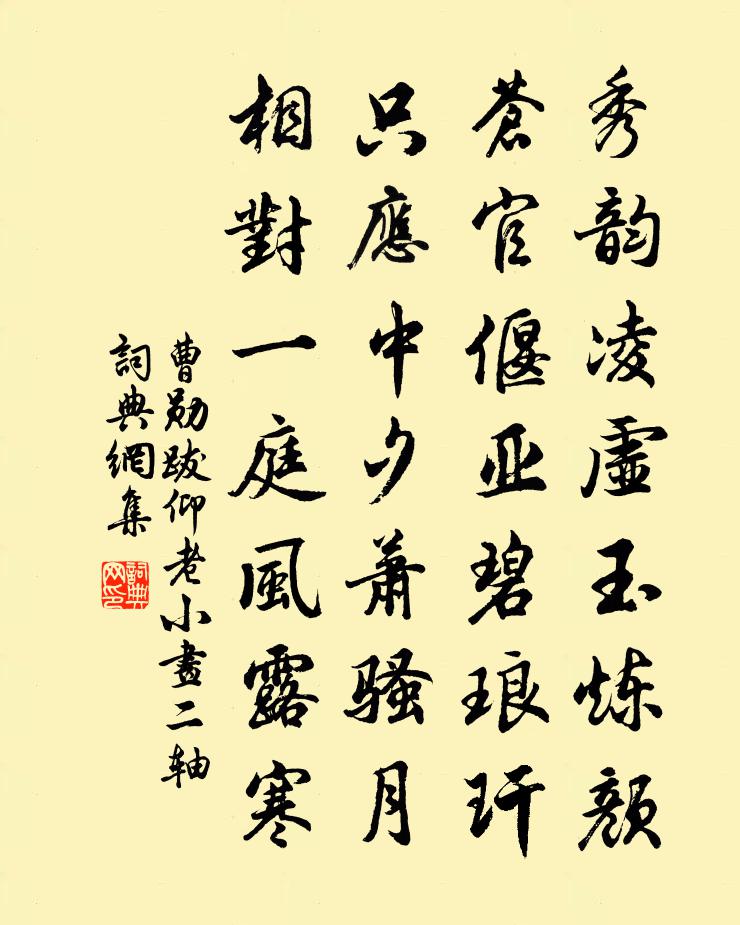 秀韵凌虚玉炼颜
蒼官偃亚碧琅玕
只應中夕萧骚月
相對一庭風露寒
曹勋跋仰老小畫二轴
詞典網集
詞典网印